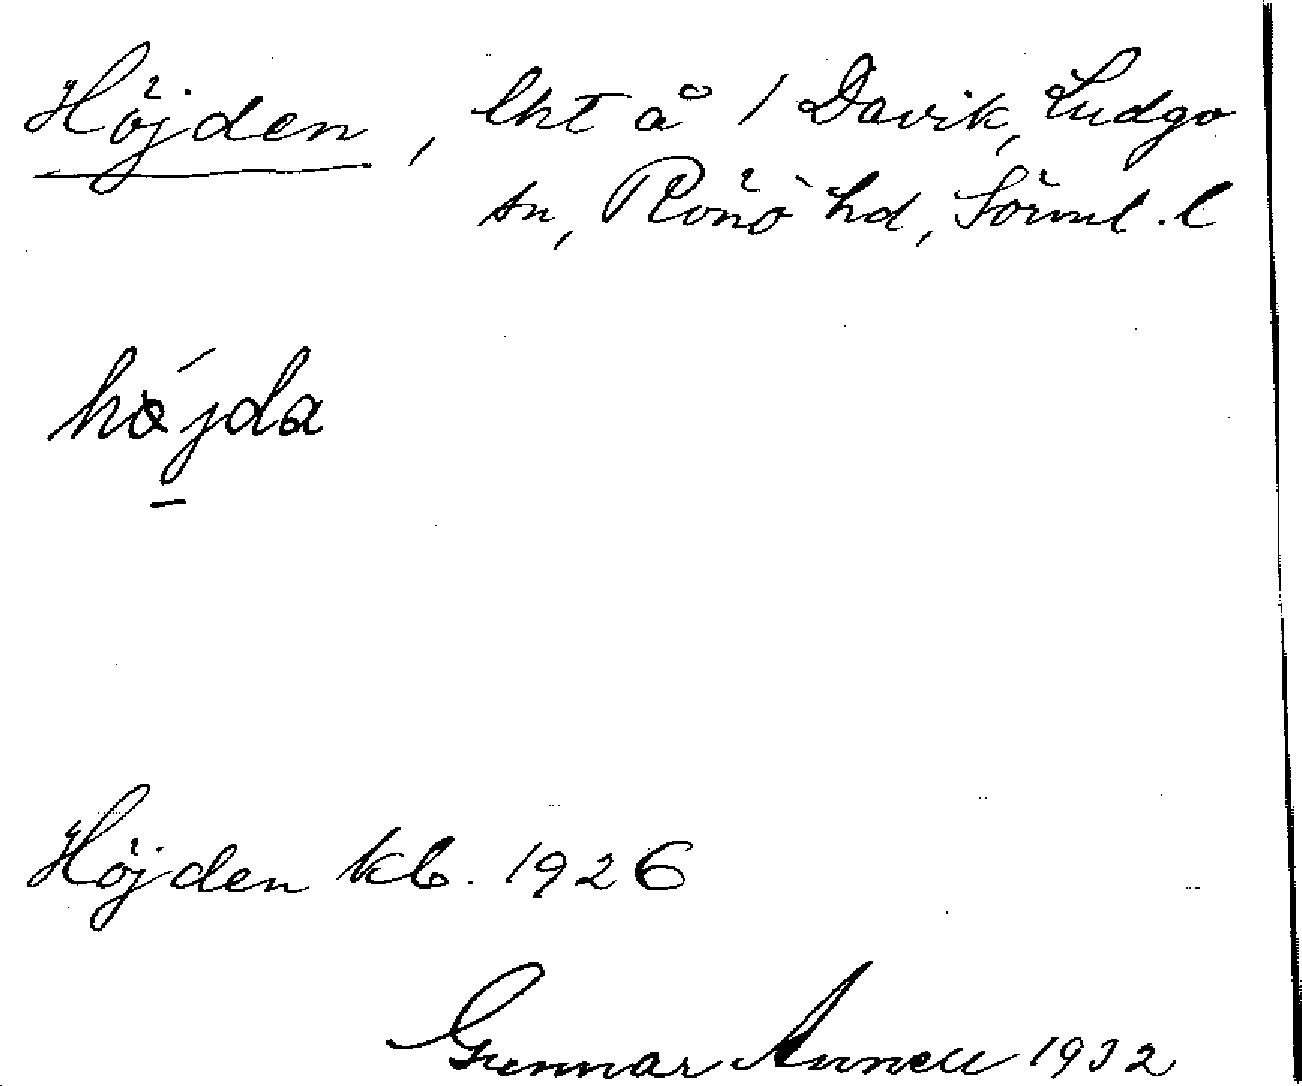 Höjden, lht å 1 Davik, Ludgo
sn, Rönö hd, Sörml. l
höjda
Höjden kb. 1926
Gunnar Annell 1932